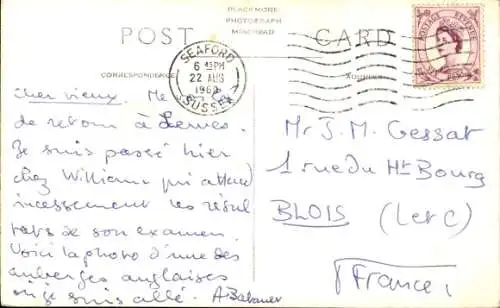 BLACKMORE
PHOTOGRAPH
POST CARD
CORRESPONDENCE
ADDRESS
SEAFORD
6 45PM
22 AUG
SUSSEX
POSTAGE REVENUE
cher vieux. Me
de retour à Lewes.
Je suis passé hier
chez William qui attend
incessement les résul
tats de son examen
Voici la photo d'une des
auberges anglaises
où je suis allé.
Mr J. M. Gessat
1 rue du Ht Bourg
BLOIS (L et C)
France